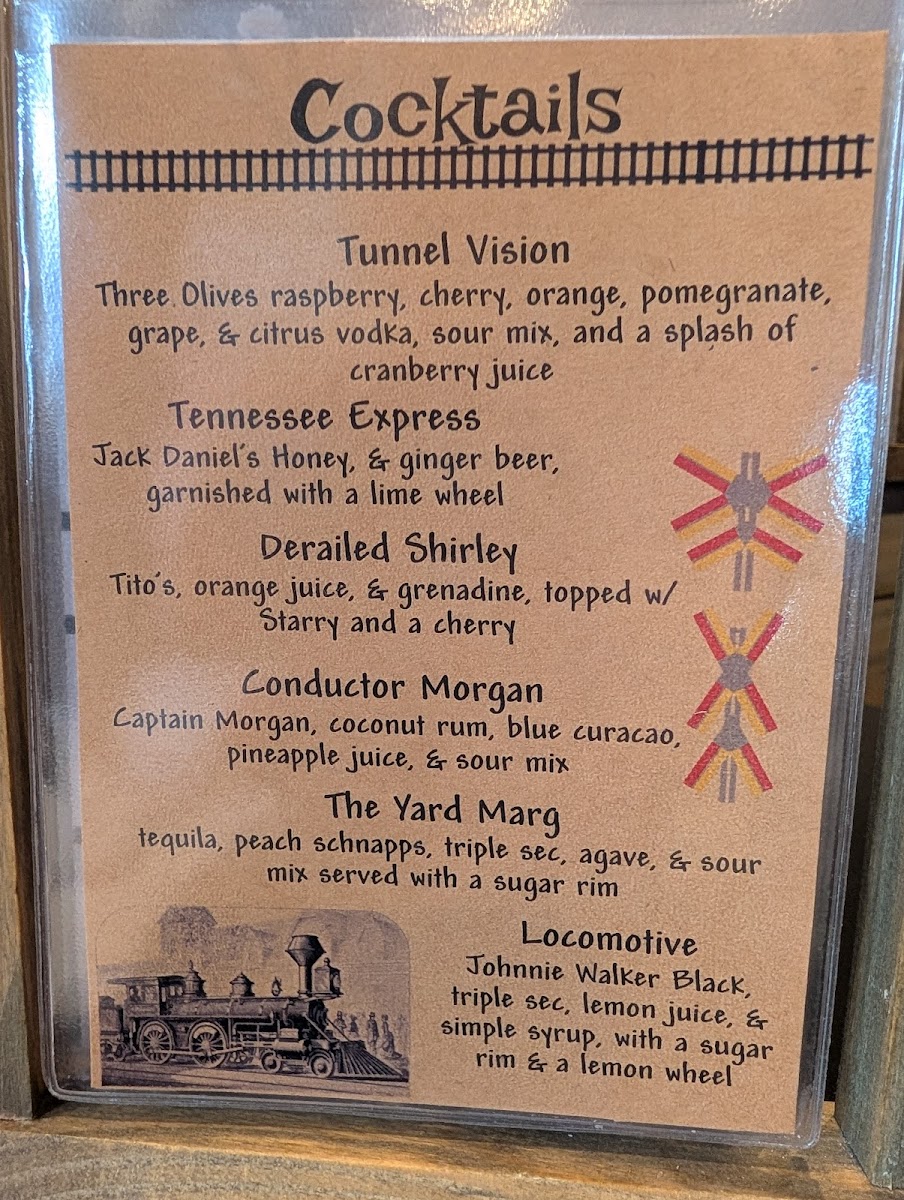 Cocktails
Tunnel Vision
Three Olives raspberry, cherry, orange, pomegranate,
grape, & citrus vodka, sour mix, and a splash of
cranberry juice
Tennessee Express
Jack Daniel's Honey, & ginger beer,
garnished with a lime wheel
Derailed Shirley
Tito's, orange juice, & grenadine, topped w/
Starry and a cherry
Conductor Morgan
Captain Morgan, coconut rum, blue curacao,
pineapple juice, & sour mix
The Yard Marg
tequila, peach schnapps, triple sec, agave, & sour
mix served with a sugar rim
Locomotive
Johnnie Walker Black,
triple sec, lemon juice, &
simple syrup, with a sugar
rim & a lemon wheel